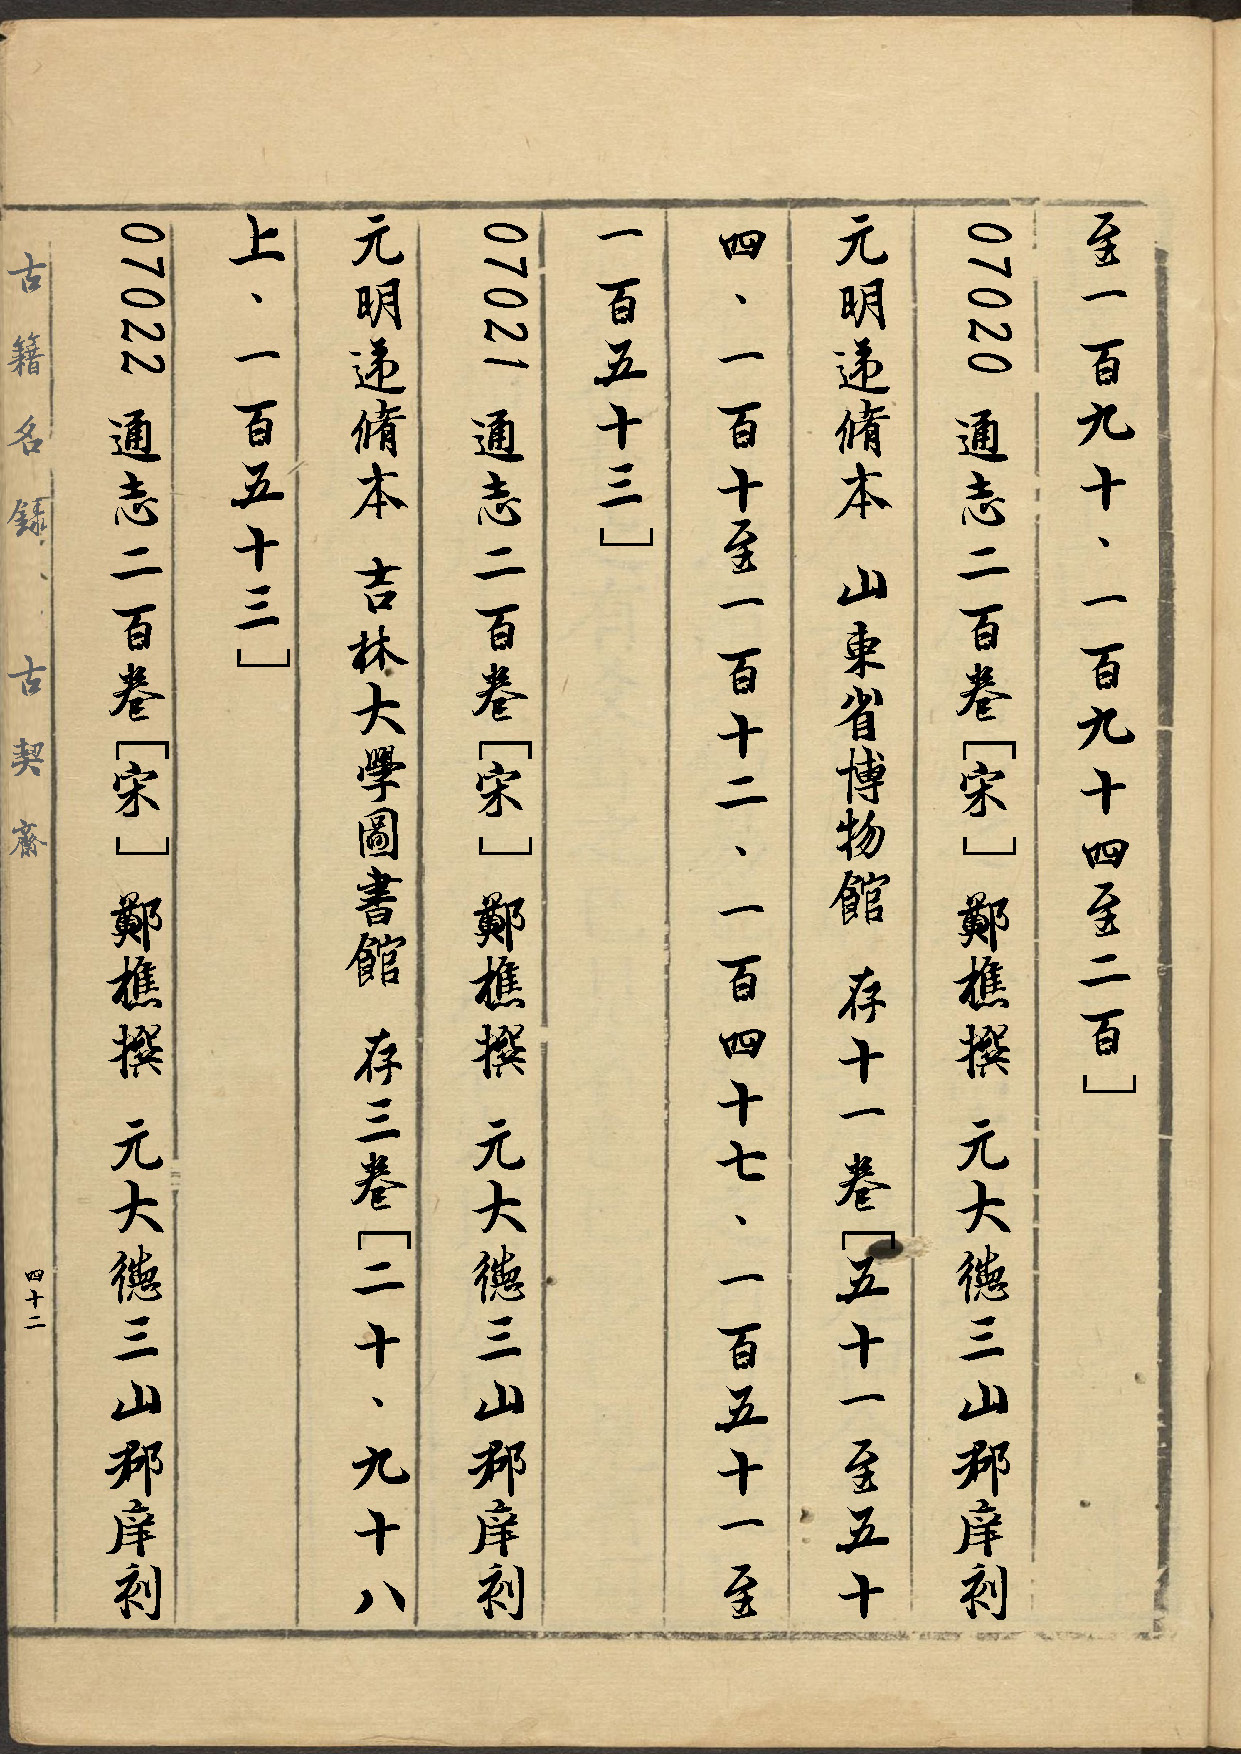 至一百九十、一百九十四至二百]
07020 通志二百卷[宋] 鄭樵撰 元大德三山郡庠刻
元明递脩本 山東省博物館 存十一卷[五十一至五十
四、一百十至一百十二、一百四十七、一百五十一至
一百五十三]
07021 通志二百卷[宋] 鄭樵撰 元大德三山郡庠刻
元明递脩本 吉林大學圖書館 存三卷[二十、九十八
上、一百五十三]
07022 通志二百卷[宋] 鄭樵撰 元大德三山郡庠刻
古籍名録、、古契齋
四十二